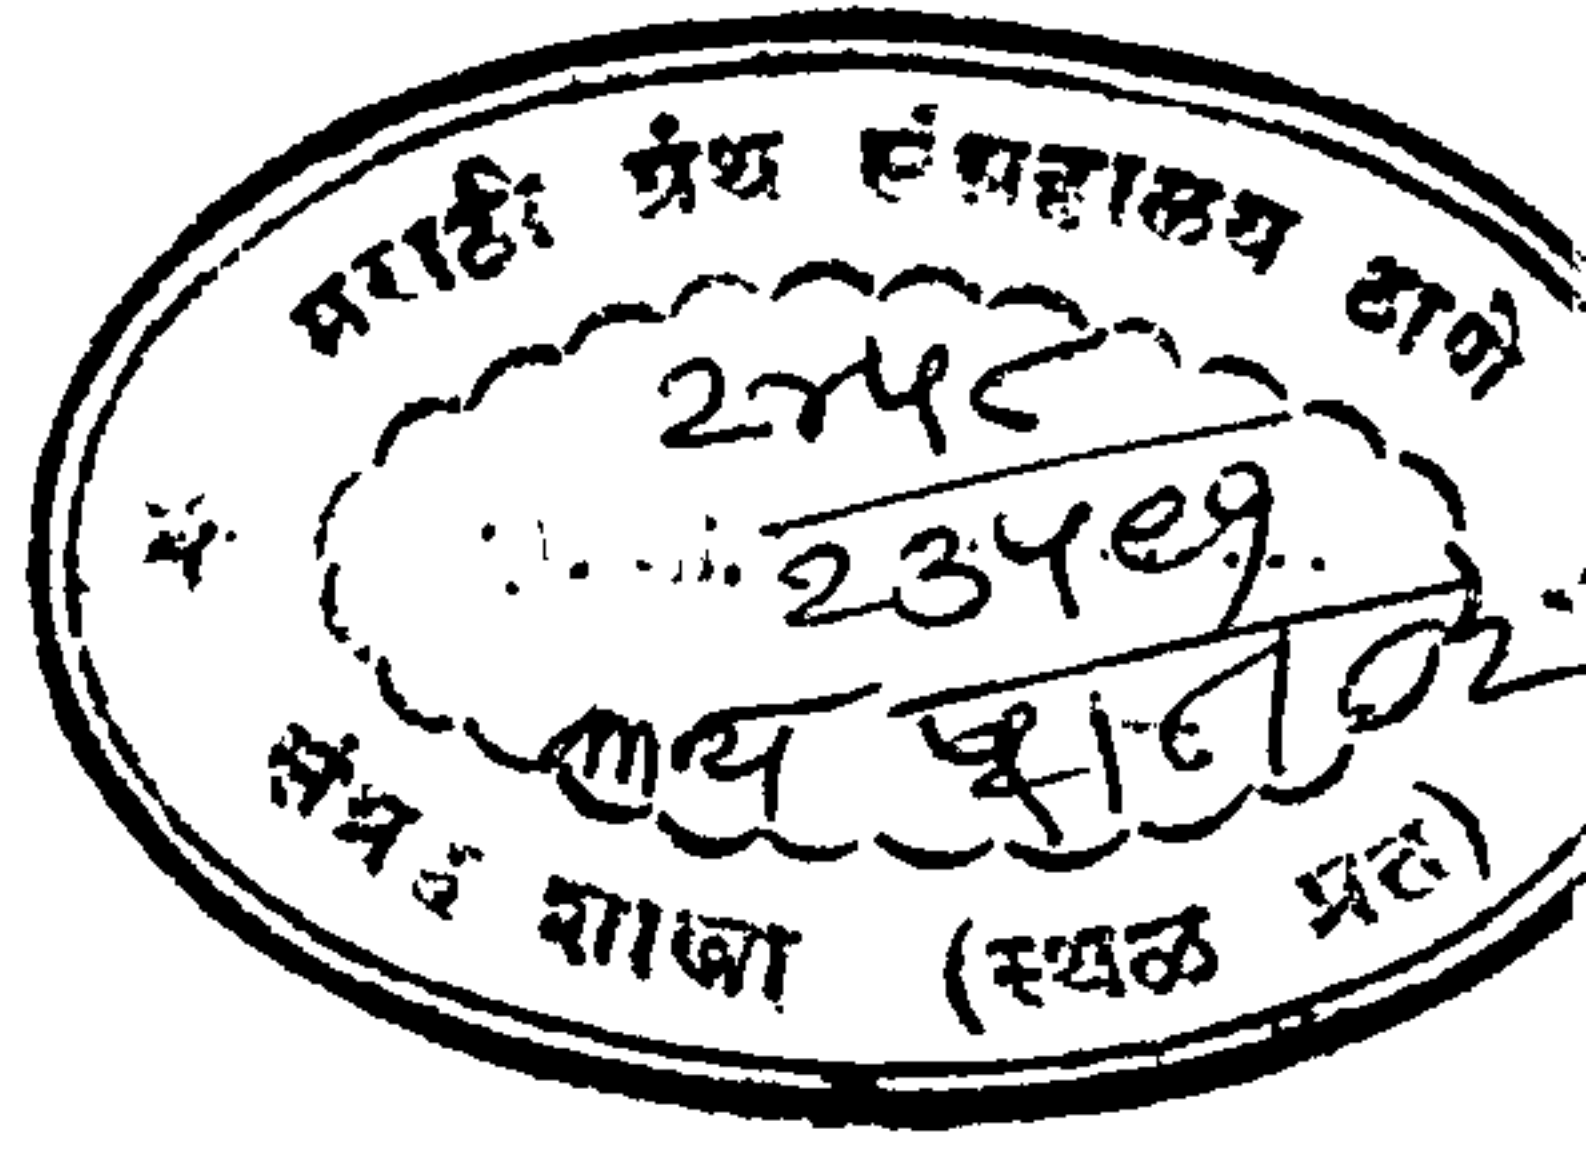 मराठी ग्रंथ संग्रहालय ठाणे
२४५८
२३५९१
संदर्भ शाखा (स्थळ प्रत)